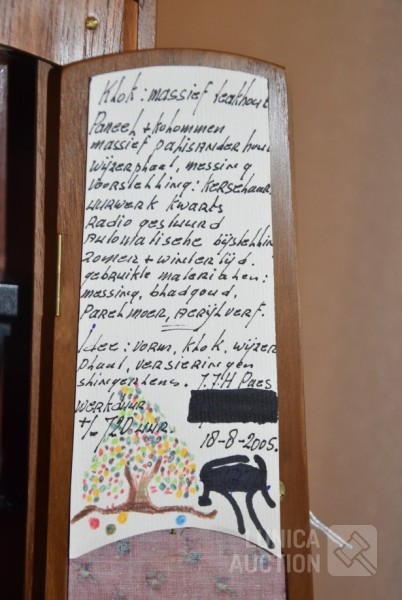 Klok: massief teakhout
Paneel + kolommen
massief palisander hout
wijzerplaat, messing
voorstelling: kersebaar
uurwerk kwarts
Radio gestuurd
Automatische bijstelling
zomer + wintertijd.
gebruikte materialen:
messing, bladgoud,
Parelmoer, Acrijlverf.
Idee: vorm, klok, wijzer
plaat, versieringen
slingerlens. J.J.H Paes
werkduur
+/- 720 uur.
18-8-2005.
LUNICA
AUCTION